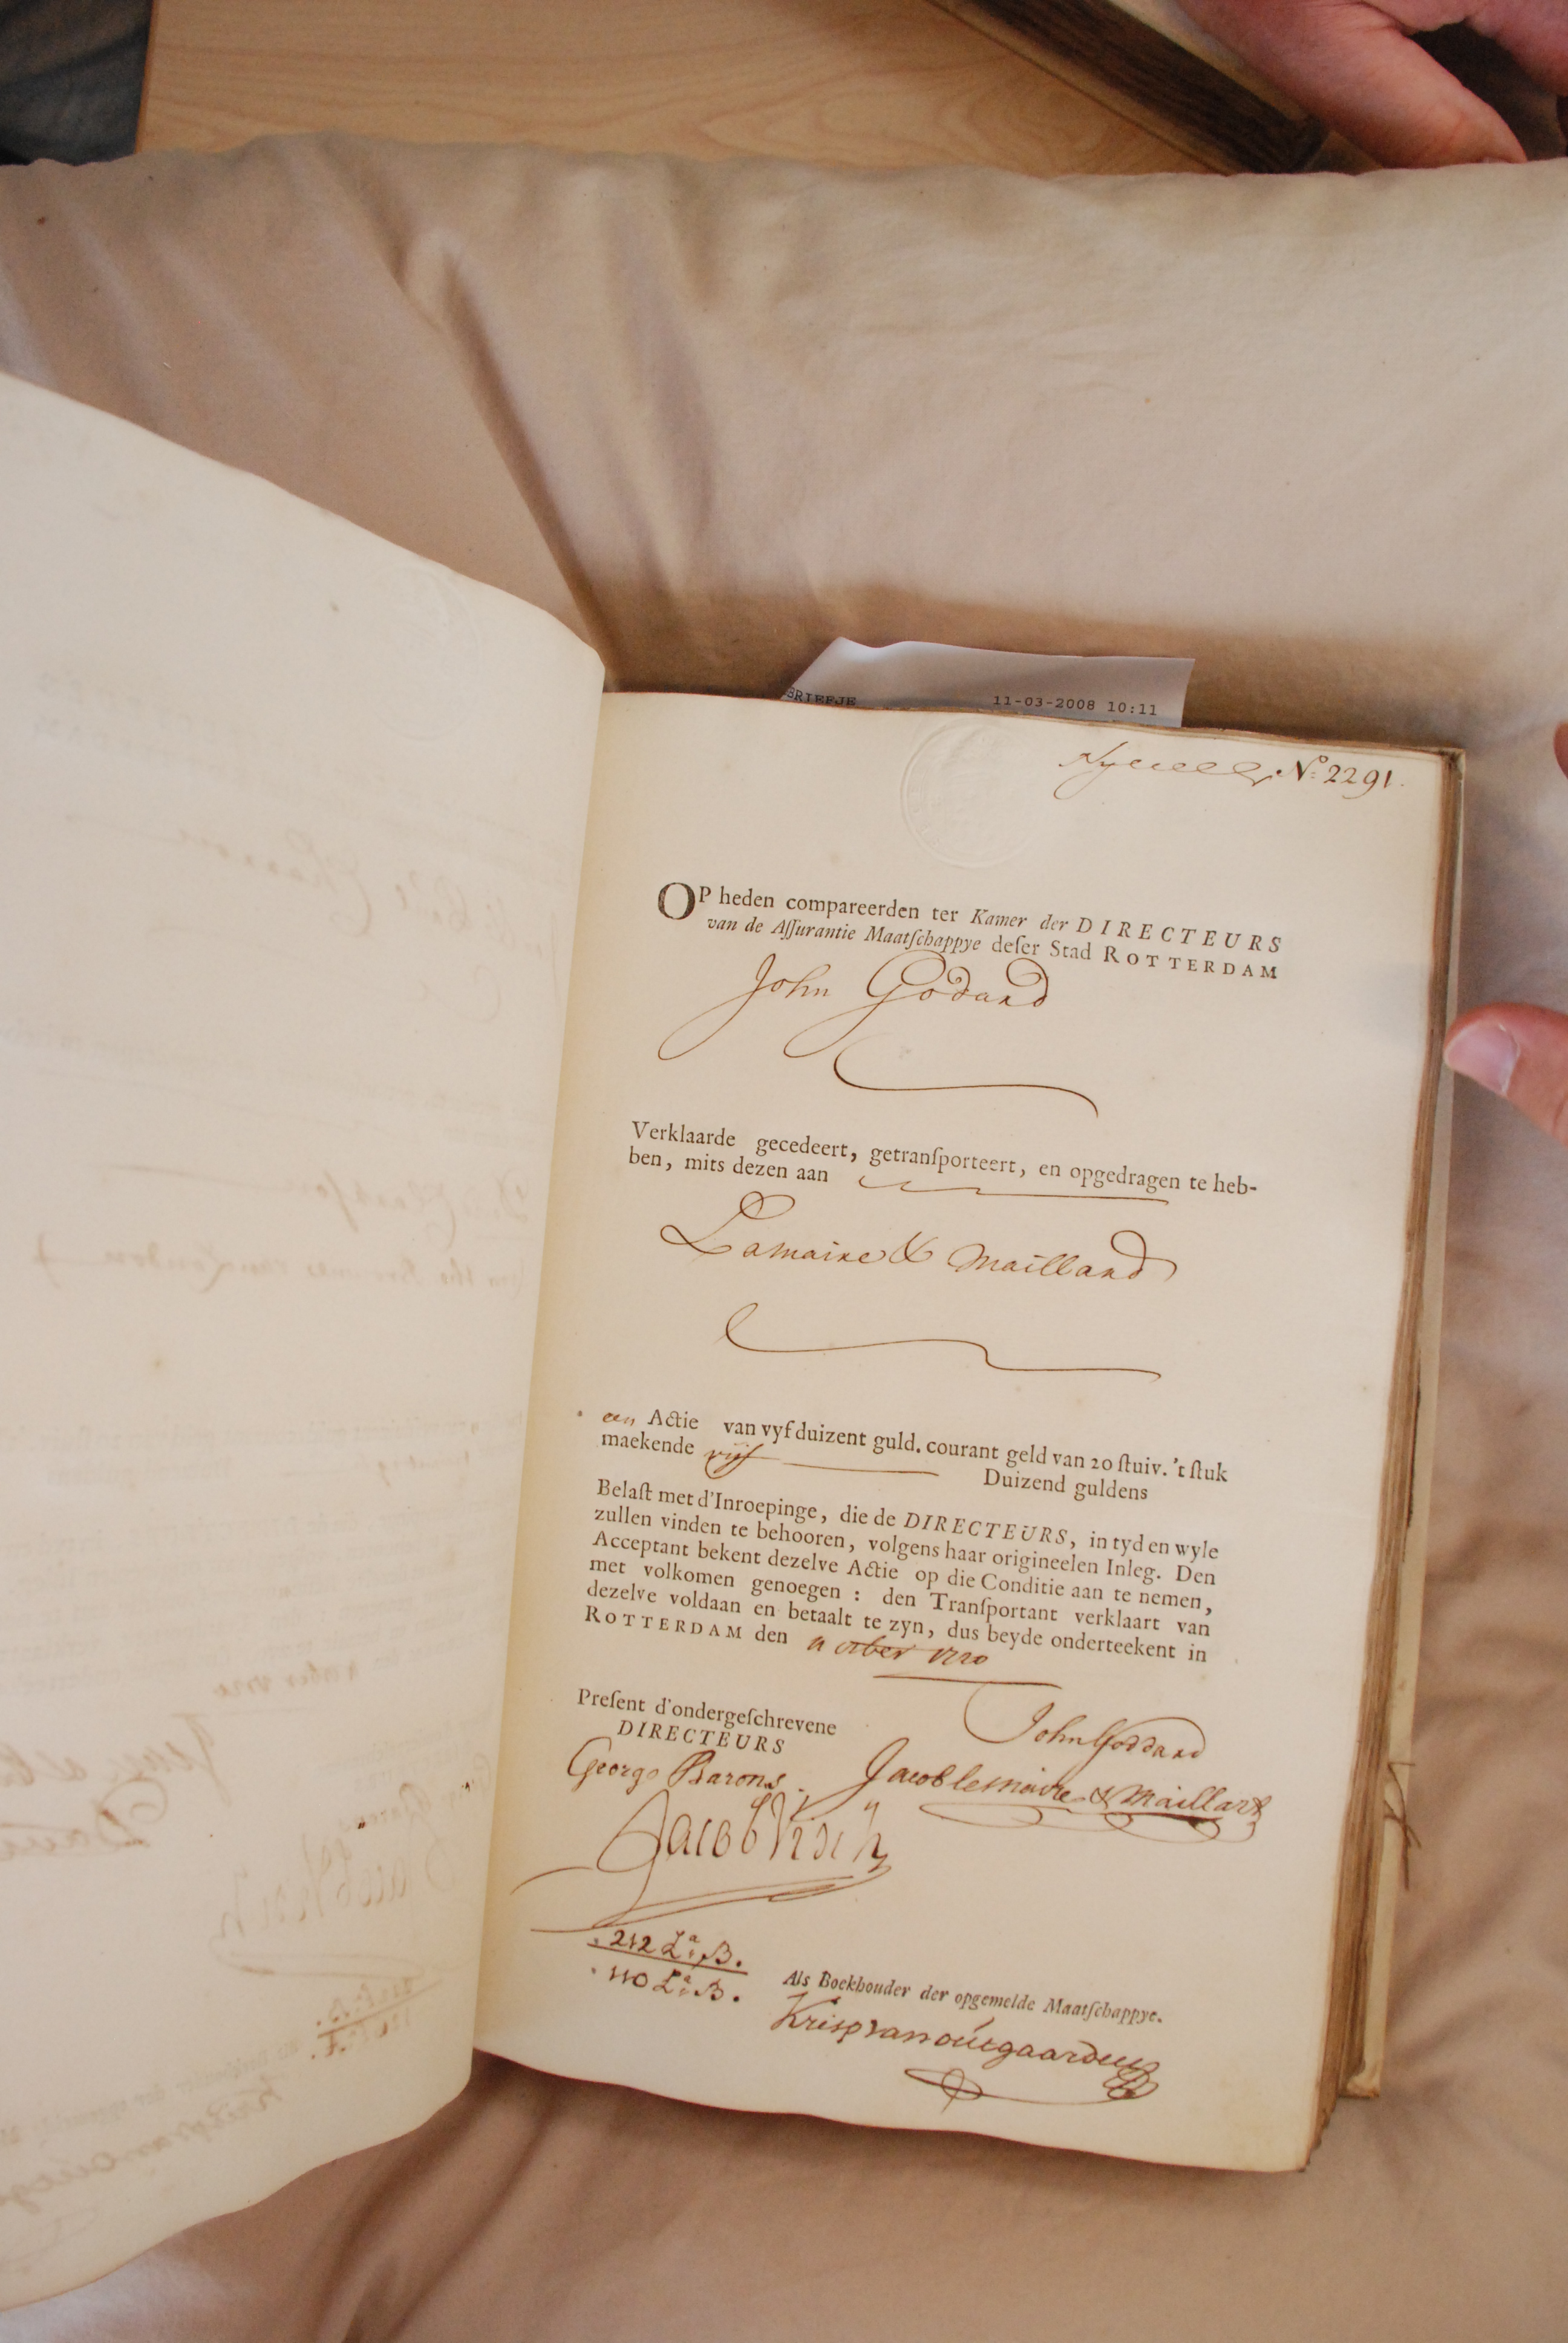 BRIEFJE 11-03-2008 10:11
No: 2291.
OP heden compareerden ter Kamer der DIRECTEURS
van de Aſſurantie Maatſchappye deſer Stad ROTTERDAM
John Godard
Verklaarde gecedeert, getranſporteert, en opgedragen te heb-
ben, mits dezen aan
Lamaire & Maillard
een Actie van vyf duizent guld. courant geld van 20 ſtuiv. 't ſtuk
maekende vijf Duizend guldens
Belaſt met d'Inroepinge, die de DIRECTEURS, in tyd en wyle
zullen vinden te behooren, volgens haar origineelen Inleg. Den
Acceptant bekent dezelve Actie op die Conditie aan te nemen,
met volkomen genoegen : den Tranſportant verklaart van
dezelve voldaan en betaalt te zyn, dus beyde onderteekent in
ROTTERDAM den 1720
John Goddard
Preſent d'ondergeſchrevene
DIRECTEURS
George Barons.
Jacob lemaire & Maillart
Jacob Visch
212 La: B.
110 La: B.
Als Boekhouder der opgemelde Maatſchappye.
Krisp van outgaarden